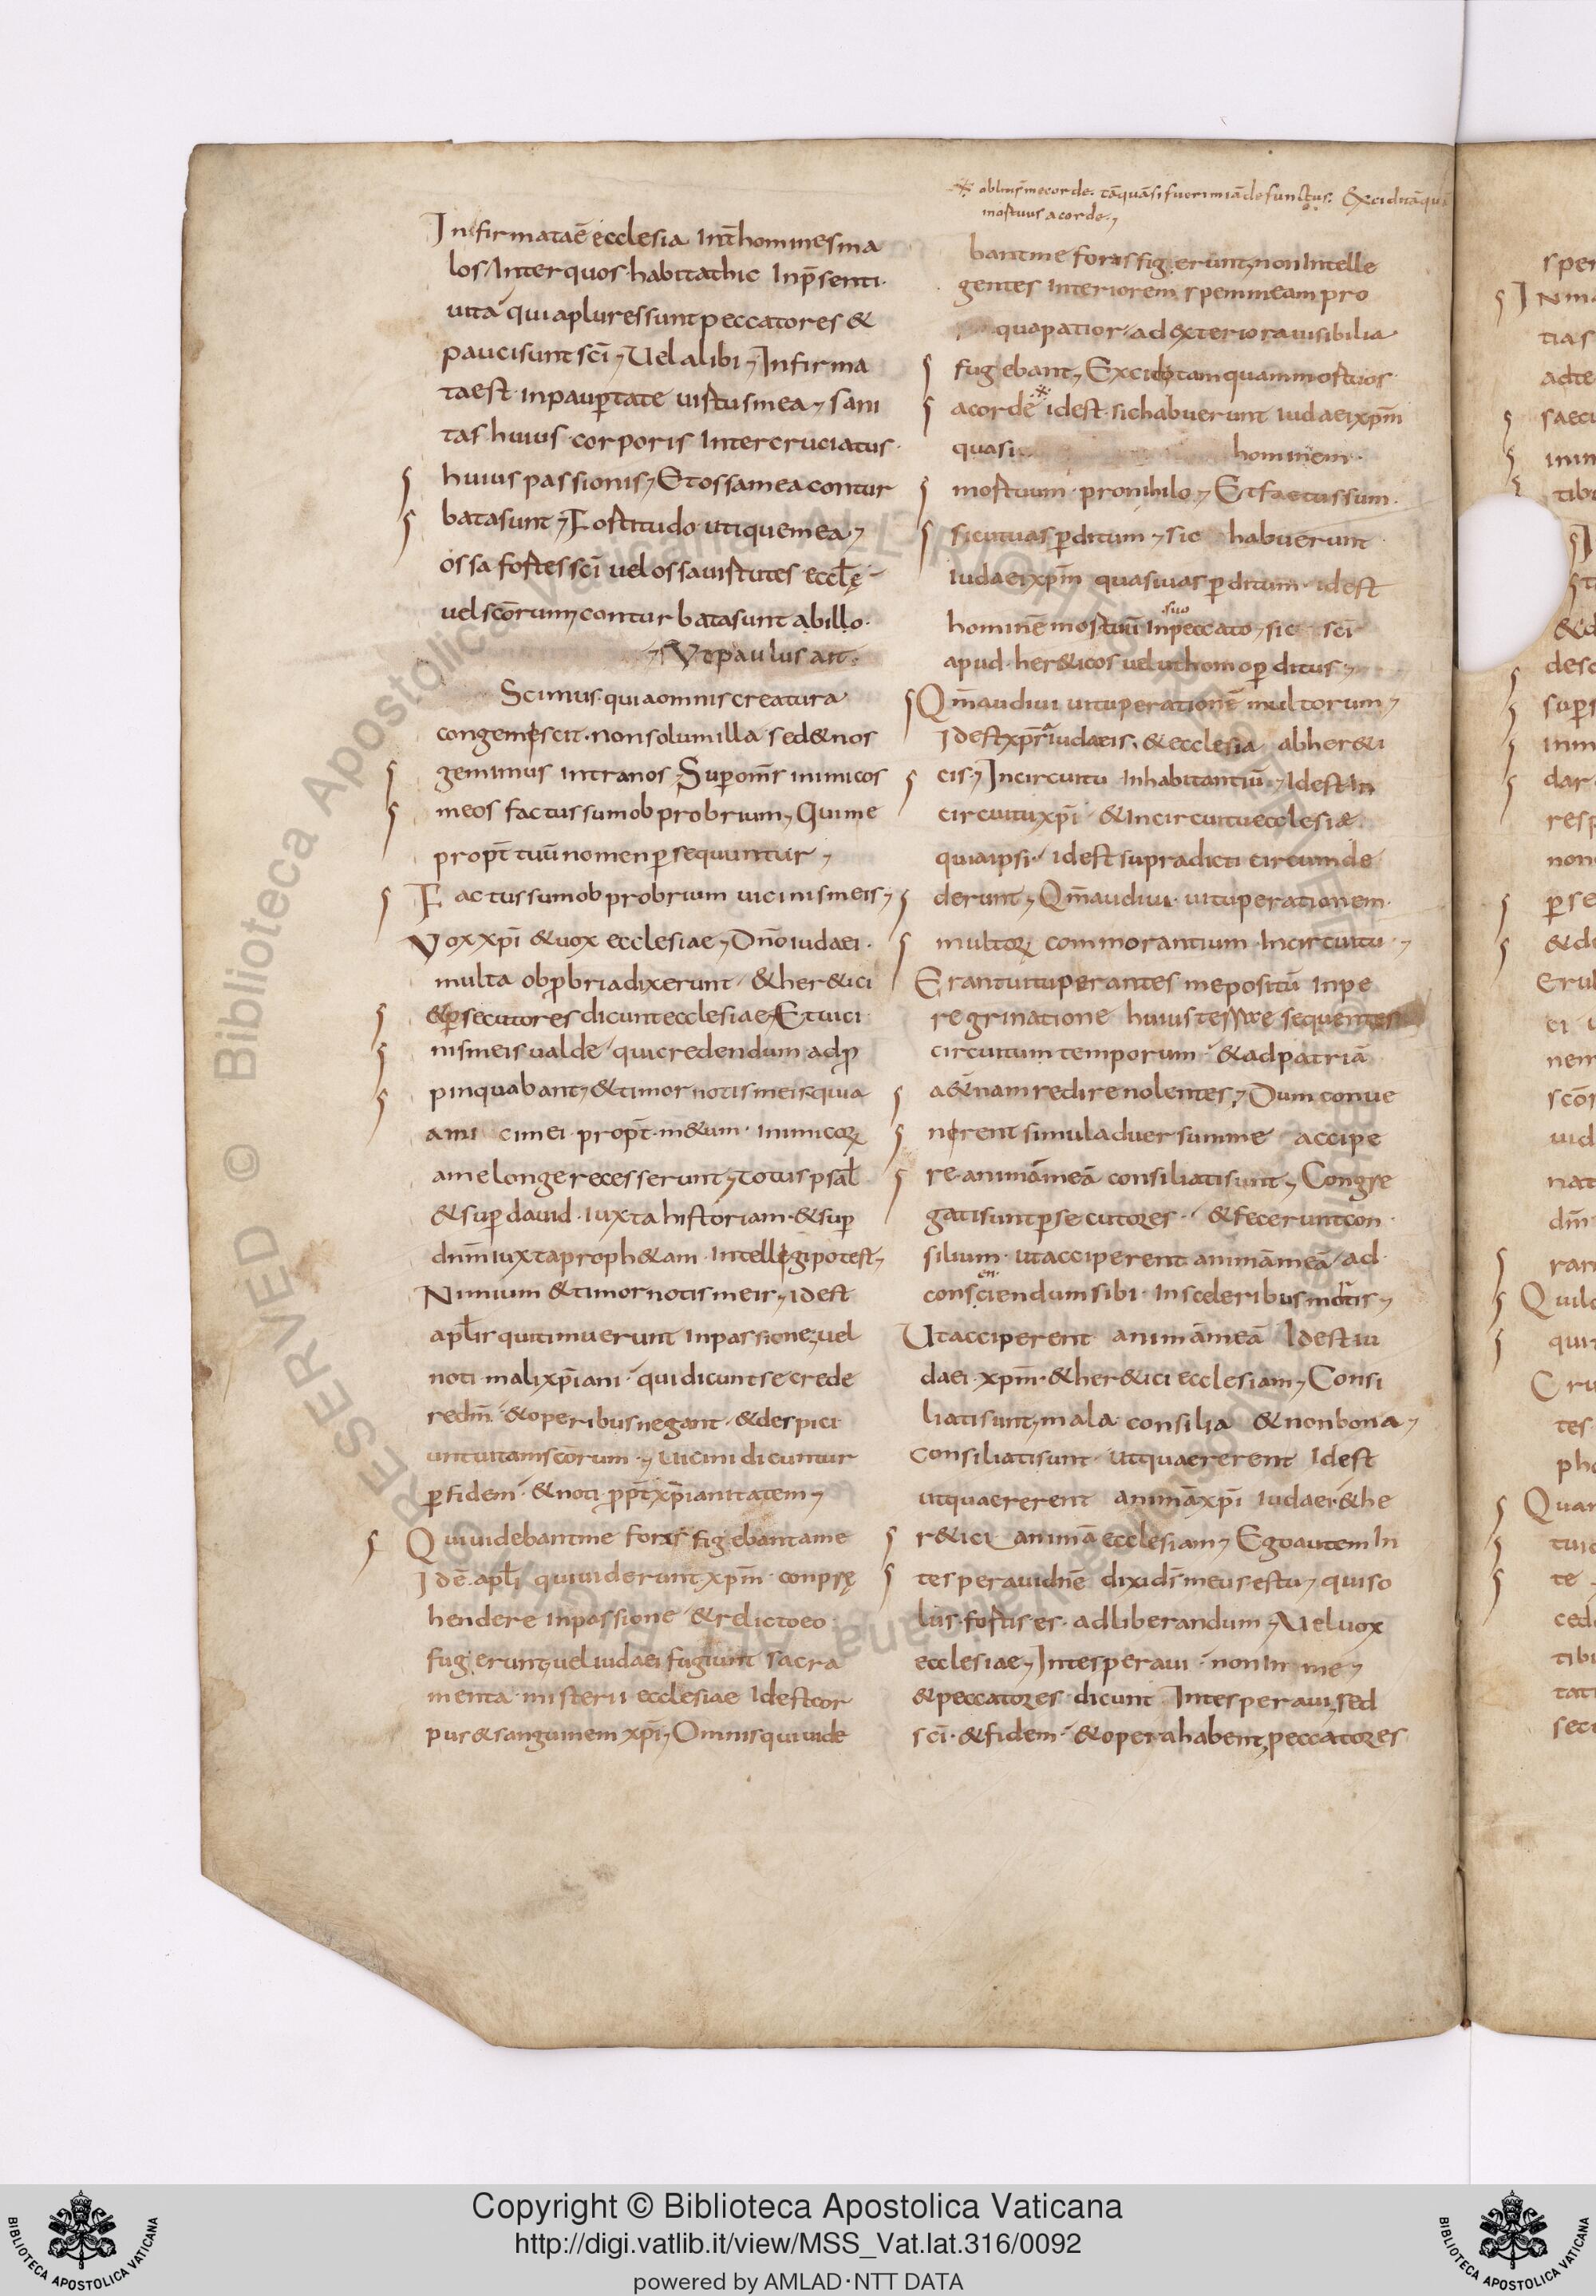 ※ obliuis̄ me corde. tāquā si fuerim iā defunctus. & excidi tāqua
mortuus a corde.
Infirmata ē ecclesia Int̄ homines ma
los Inter quos habitat hic In p̄senti
uitā quia plures sunt peccatores &
pauci sunt sc̄i Uel alibi Infirma
ta est In paup̄tate uirtus mea sani
tas huius corporis Inter cruciatus
huius passionis Et ossa mea contur
bata sunt Fortitudo utique mea
ossa fortes sc̄i uel ossa uirtutes eccl̄ę
uel sc̄orum conturbata sunt ab illo
Ut paulus ait
Scimus quia omnis creatura
congemescit non solum illa sed & nos
gemimus Intra nos Sup om̄s Inimicos
meos factus sum obprobrium Qui me
propt̄ tuū nomen p̱sequuntur
Factus sum obprobrium uicinis meis
Vox xp̄i & uox ecclesiae Dn̄o iudaei
multa obp̱bria dixerunt & her&ici
& p̱secutores dicunt ecclesiae Et uici
nis meis ualde qui credendum adp̱
pinquabant & timor notis meis quia
amici mei propt̄ m&um Inimicoꝝ
a me longe recesserunt totus psal̄
& sup̱ dauid iuxta historiam & sup̱
dn̄m iuxta proph&iam Intellegi potest
Nimium & timor notis meis idest
apl̄is qui timuerunt In passione uel
noti mali xp̄iani qui dicunt se crede
re dm̄ & operibus negant & despici
unt uitam sc̄orum uicini dicuntur
p̱ fidem & noti pp̄t xp̄ianitatem
Qui uidebant me foras fugebant a me
Id ē apl̄i qui uiderunt xp̄m conprę
hendere In passione & relicto eo
fugerunt uel iudaei fugiunt sacra
menta misterii ecclesiae Idest cor
pus & sanguinem xp̄i Omnis qui uide
bant me foris fugerunt non Intelle
gentes Interiorem spem meam pro
qua patior ad exteriora uisibilia
fugebant Excidi tamquam mortuos
a corde※ idest sic habuerunt iudaei xp̄m
quasi hominem
mortuum pro nihilo Et factus sum
sicut uas p̱ditum sic habuerunt
iudaei xp̄m quasi uas p̱ditum idest
hominē mortuū In peccato suo sic sc̄i
apud her&icos uelut homo p̱ditus
Qm̄ audiui uituperationē multorum
Idest xp̄s a iudaeis & ecclesia ab her&i
cis In circuitu Inhabitantiū Idest In
circuitu xp̄i & In circuitu ecclesiæ
quia ipsi idest supradicti circumde
derunt Qm̄ audiui uituperationem
multoꝝ commorantium In circuitu
Erant uituperantes me positū In pe
regrinatione huius terrae sequentes
circuitum temporum & ad patriā
a&ernam redire nolentes Dum conue
nerent simul aduersum me accipe
re animā meā consiliati sunt Congre
gati sunt p̱secutores & fecerunt con
silium ut acciperent animā meā ad
consenciendum sibi In sceleribus
Ut acciperent animā meā Idest iu
daei xp̄m & her&ici ecclesiam Consi
liati sunt mala consilia & non bona
Consiliati sunt ut quaererent Idest
ut quaererent animā xp̄i iudaei & he
r&ici animā ecclesiam Ego autem In
te speraui dn̄e dixi ds̄ meus es tu qui so
lus fortis es ad liberandum Uel uox
ecclesiae In te speraui non In me
& peccatores dicunt In te speraui sed
sc̄i & fidem & opera habent peccatores
Copyright © Biblioteca Apostolica Vaticana
http://digi.vatlib.it/view/MSS_Vat.lat.316/0092
powered by AMLAD·NTT DATA